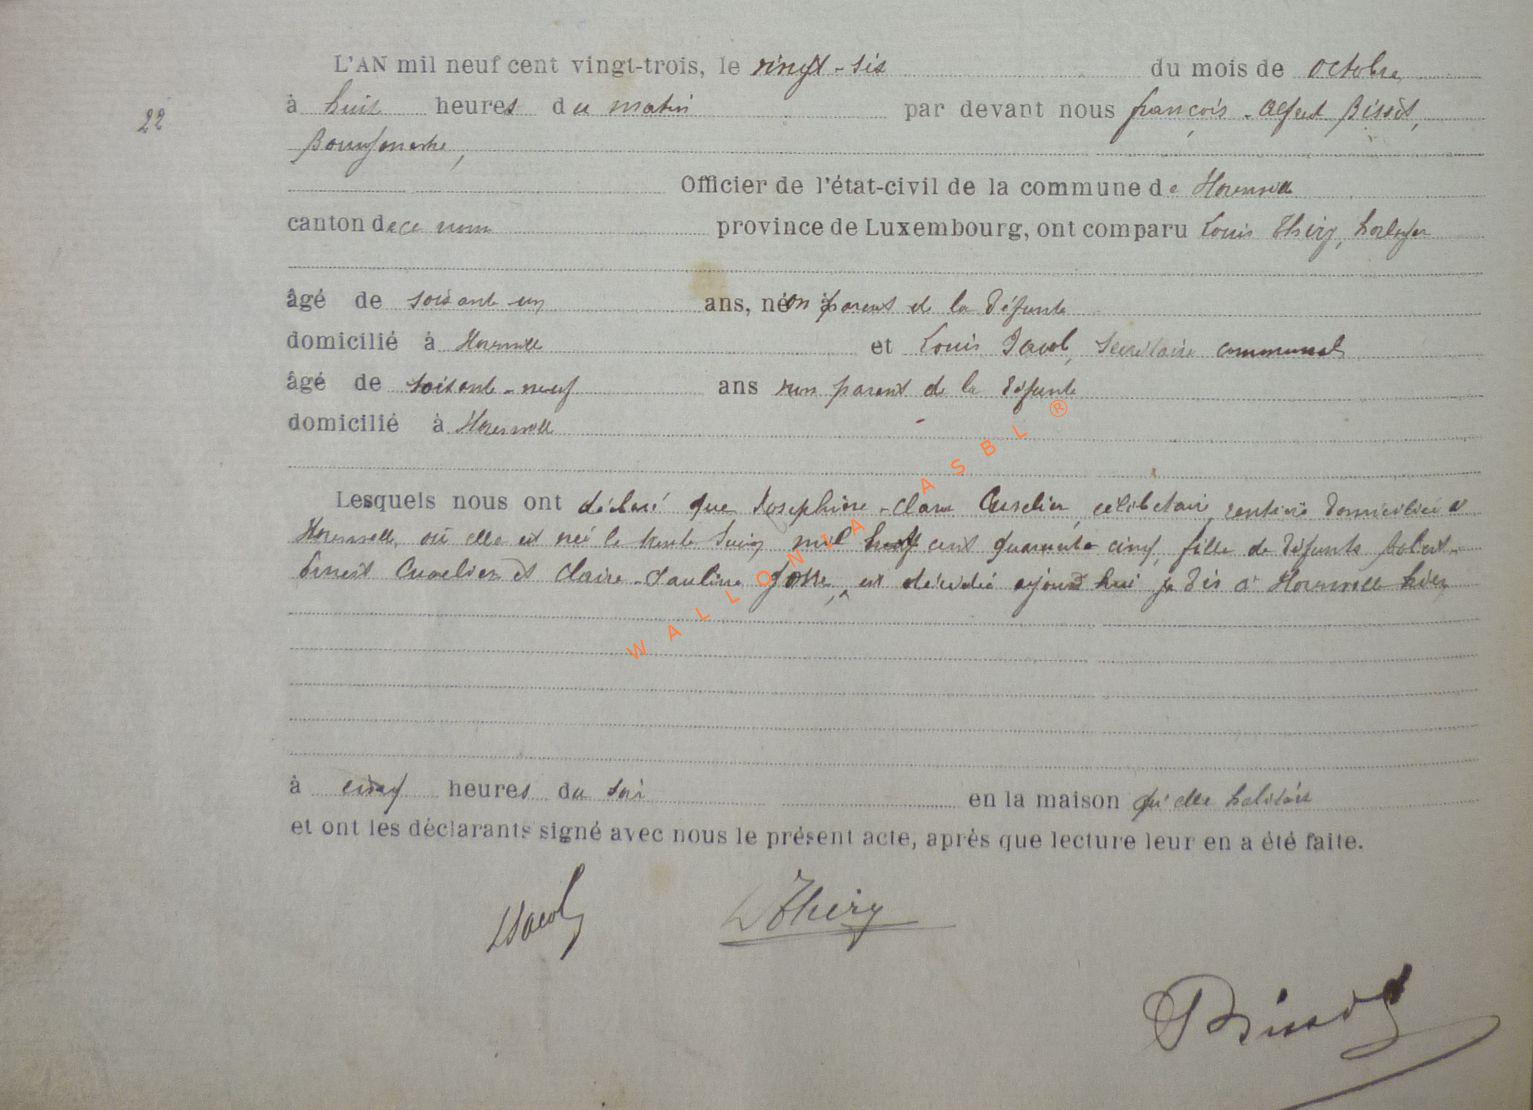 L'AN mil neuf cent vingt-trois, le vingt-six du mois de octobre
22
à huit heures du matin par devant nous françois-Alfred Bissot,
Bourgmestre,
Officier de l'état-civil de la commune de
canton de ce nom province de Luxembourg, ont comparu Louis Thiry, horloger
âgé de soixante-un ans, né non parent de la défunte
domicilié à et Louis Jacob, Secrétaire communal
âgé de soixante-neuf ans non parent de la défunte
domicilié à
Lesquels nous ont déclaré que Joséphine-Clara Cuvelier, célibataire, rentière domiciliée à
où elle est née le trente Juin mil huit cent quarante cinq, fille de défunts
Ernest Cuvelier et Claire-Pauline est décédée à hier
à cinq heures du soir en la maison qu'elle habitait
et ont les déclarants signé avec nous le présent acte, après que lecture leur en a été faite.
LJacob LThiry
Bissot
WALLONIA ASBL ®